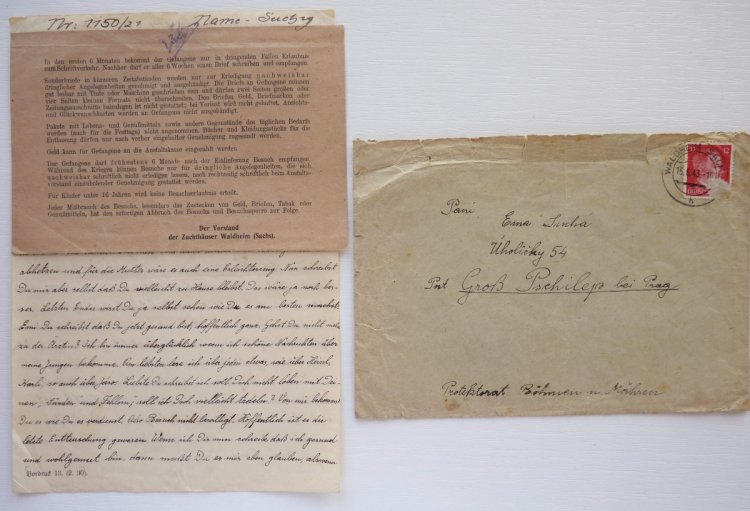 Nr: 1150/21 Name - Suchy
In den ersten 6 Monaten bekommt der Gefangene nur in dringenden Fällen Erlaubnis
zum Schriftverkehr. Nachher darf er alle 6 Wochen einen Brief schreiben und empfangen.
Sonderbriefe in kürzeren Zeitabständen werden nur zur Erledigung nachweisbar
dringlicher Angelegenheiten genehmigt und ausgehändigt. Die Briefe an Gefangene müssen
gut lesbar mit Tinte oder Maschine geschrieben sein und dürfen zwei Seiten großen oder
vier Seiten kleinen Formats nicht überschreiten. Den Briefen Geld, Briefmarken oder
Zeitungsausschnitte beizulegen ist nicht gestattet; bei Verlust wird nicht gehaftet. Ansichts-
und Glückwunschkarten werden an Gefangene nicht ausgehändigt.
Pakete mit Lebens- und Genußmitteln sowie andern Gegenständen des täglichen Bedarfs
werden (auch für die Festtage) nicht angenommen, Bücher und Kleidungsstücke für die
Entlassung dürfen nur nach vorher eingeholter Genehmigung zugesandt werden.
Geld kann für Gefangene an die Anstaltskasse eingezahlt werden.
Der Gefangene darf frühestens 6 Monate nach der Einlieferung Besuch empfangen.
Während des Krieges können Besuche nur für dringliche Angelegenheiten, die sich
nachweisbar schriftlich nicht erledigen lassen, nach rechtzeitig schriftlich beim Anstalts-
vorstand einzuholender Genehmigung gestattet werden.
Für Kinder unter 16 Jahren wird keine Besuchserlaubnis erteilt.
Jeder Mißbrauch des Besuchs, besonders das Zustecken von Geld, Briefen, Tabak oder
Genußmitteln, hat den sofortigen Abbruch des Besuchs und Besuchssperre zur Folge.
Der Vorstand
der Zuchthäuser Waldheim (Sachs).
abhetzen und für die Mutter wäre es auch eine Erleichterung. Nun schreibst
Du mir aber selbst daß Du vielleicht zu Hause bleibst. Das wäre ja noch bes-
ser. Letzten Endes wirst Du ja selbst sehen wie Du es am besten machst.
Emi Du schreibst daß Du jetzt gesund bist, hoffentlich ganz. Gehst Du nicht mehr
zu der Ärztin? Ich bin immer überglücklich wenn ich schöne Nachrichten über
meine Jungen bekomme. Am liebsten lese ich über jeden etwas, wie über
Karli, so auch über Jaro. Liebste Du schreibst ich soll Dich nicht loben mit Dei-
nen „Sünden und Fehlern“, soll ich Dich vielleicht tadeln? Von mir bekommst
Du es wie Du es verdienst. Also Besuch nicht bewilligt. Hoffentlich ist es die
letzte Enttäuschung gewesen. Wenn ich Dir nun schreibe daß ich gesund
und wohlgemut bin, dann mußt Du es mir eben glauben, als wenn
Vordruck 13. (2. 30).
WALDHEIM
Paní
Ema Suchá
Úholičky 54
Post Groß Pschilep bei Prag
Protektorat Böhmen u. Mähren